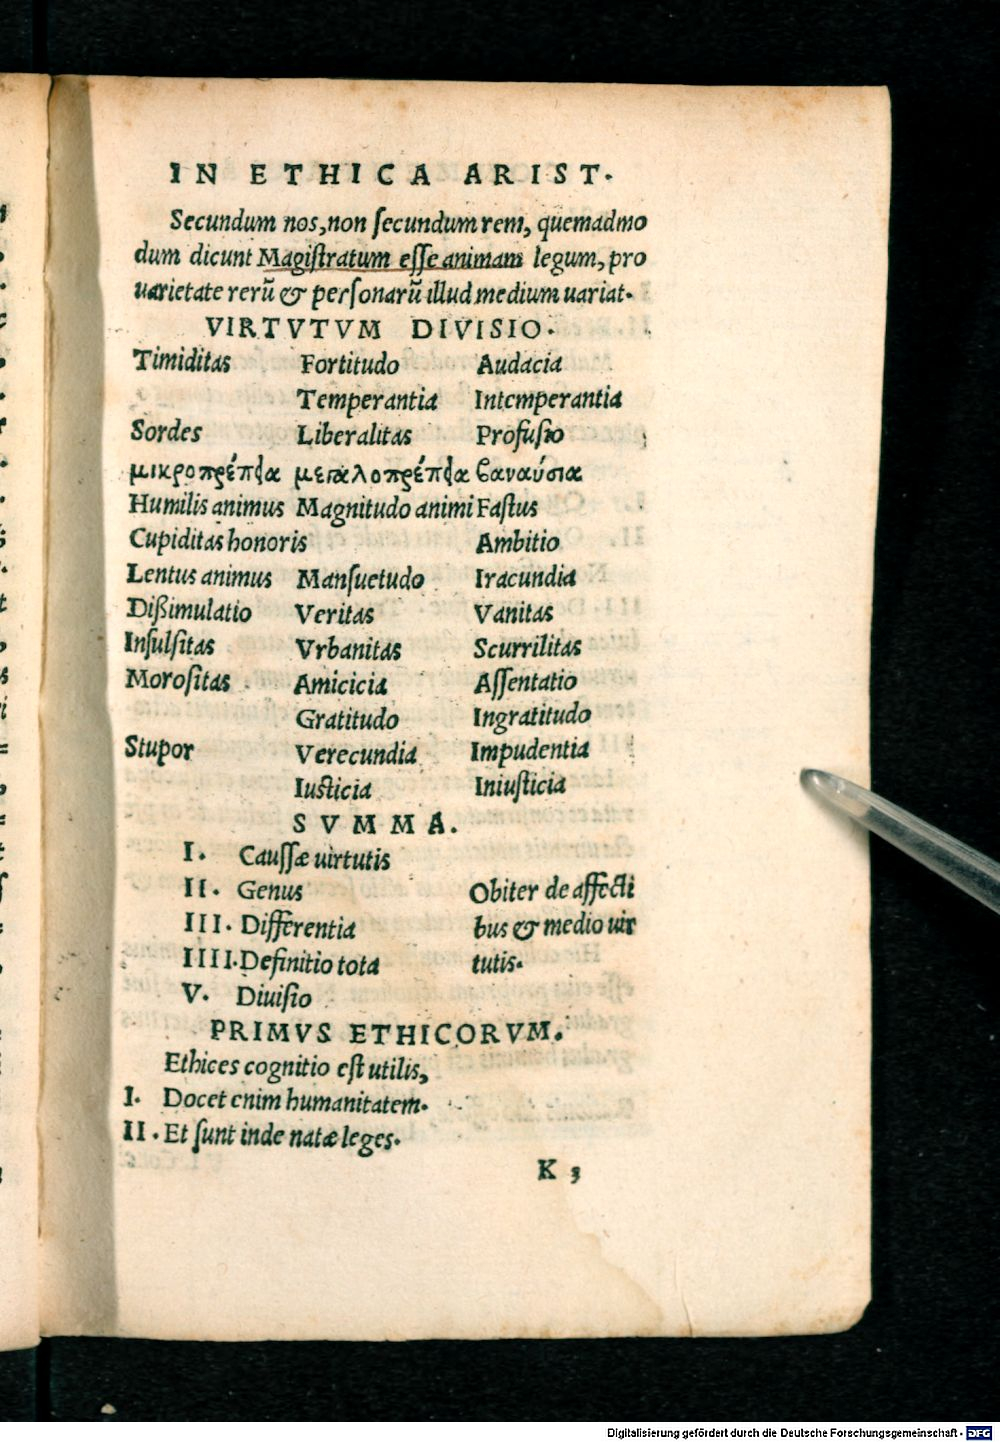 IN ETHICA ARIST.
Secundum nos, non ſecundum rem, quemadmo
dum dicunt Magiſtratum eſſe animam legum, pro
uarietate rerū & perſonarū illud medium uariat.
VIRTVTVM DIVISIO.
Timiditas Fortitudo Audacia
Temperantia Intemperantia
Sordes Liberalitas Profuſio
μικροπρέπεια μεγαλοπρέπεια βαναύσια
Humilis animus Magnitudo animi Faſtus
Cupiditas honoris Ambitio
Lentus animus Manſuetudo Iracundia
Dißimulatio Veritas Vanitas
Inſulſitas Vrbanitas Scurrilitas
Moroſitas Amicicia Aſſentatio
Gratitudo Ingratitudo
Stupor Verecundia Impudentia
Iuſticia Iniuſticia
SVMMA.
I. Cauſſæ uirtutis
II. Genus Obiter de affecti
III. Differentia bus & medio uir
IIII. Definitio tota tutis.
V. Diuiſio
PRIMVS ETHICORVM.
Ethices cognitio eſt utilis,
I. Docet enim humanitatem.
II. Et ſunt inde natæ leges.
K 3
Digitalisierung gefördert durch die Deutsche Forschungsgemeinschaft - DFG